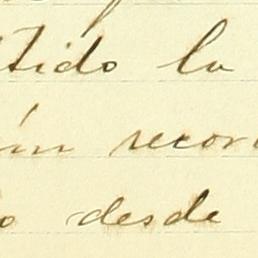 tido la
ún recor
o desde